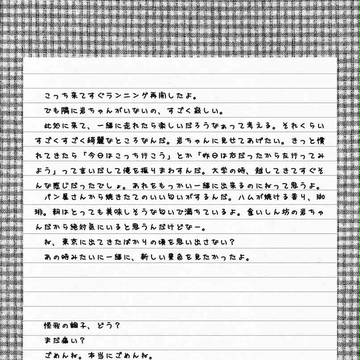 こっち来てすぐランニング再開したよ。
でも隣に君ちゃんがいないの、すごく寂しい。
此処に来て、一緒に走れたら楽しいだろうなぁって考える。それくらい
すごくすごく綺麗なところなんだ。君ちゃんに見せてあげたい。きっと慣
れてきたら「今日はこっち行こう」とか「昨日は右だったから左行ってみ
よう」って言いだして俺を振りまわすんだ。大学の時、越してきてすぐそ
んな感じだったでしょ。あれをもっかい一緒に出来るのになって思うよ。
パン屋さんから焼きたてのいい匂いがするんだ。ハムが焼ける香り、珈
琲。朝はとっても美味しそうな匂いで満ちているよ。食いしん坊の君ちゃ
んだから絶対気にいると思うんだけどなー。
ね、東京に出てきたばかりの頃を思い出さない？
あの時みたいに一緒に、新しい景色を見たかったよ。
怪我の調子、どう？
まだ痛い？
ごめんね。本当にごめんね。